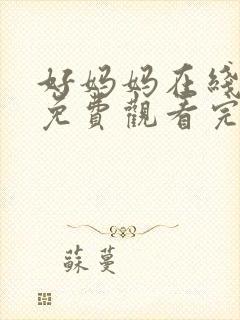 好妈妈在线
免费觀看完
蘇蔓